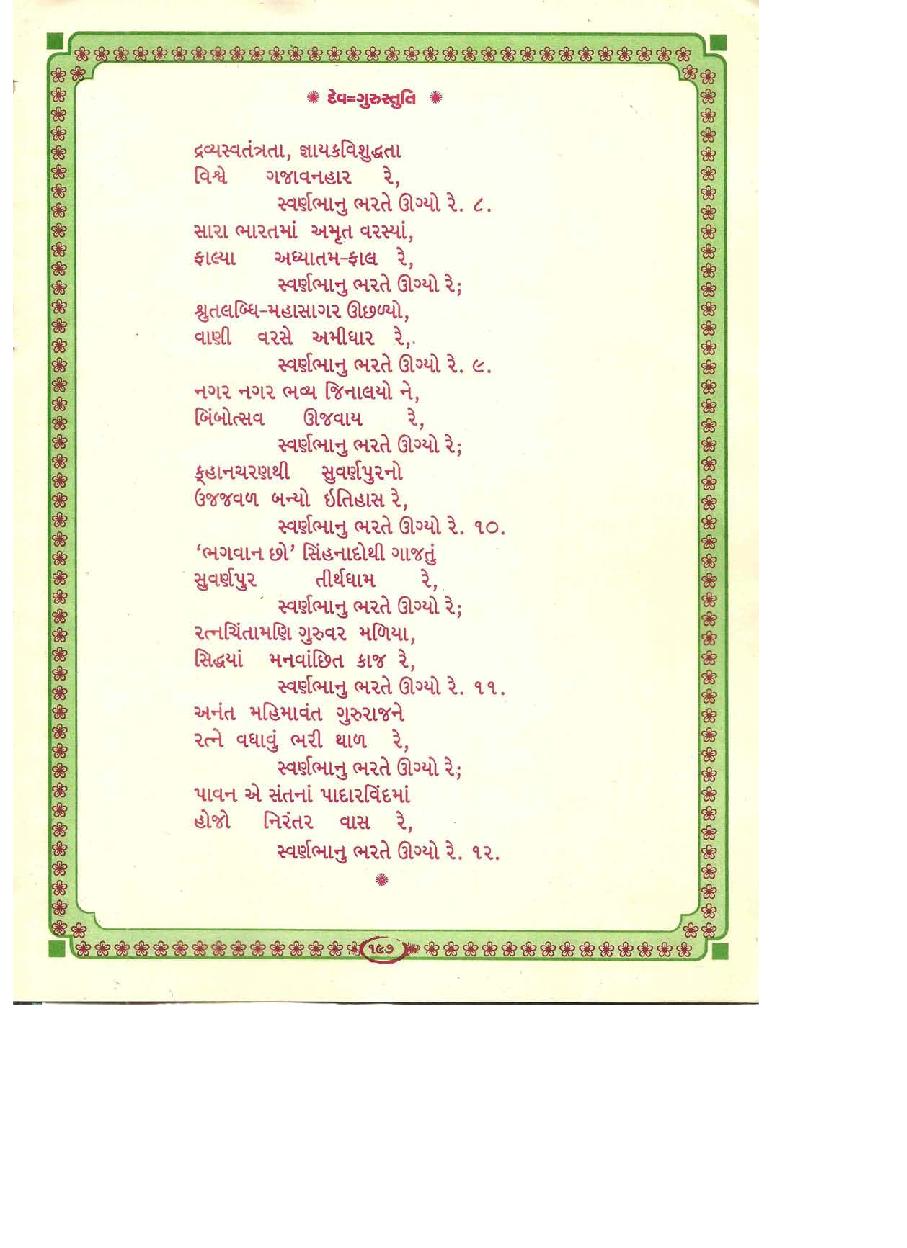 દેવ=ગુરુસ્તુતિ
દ્રવ્યસ્વતંત્રતા, જ્ઞાયકવિશુદ્ધતા
વિશ્વે ગજાવનહાર રે,
સ્વર્ણભાનુ ભરતે ઊગ્યો રે. ૮.
સારા ભારતમાં અમૃત વરસ્યાં,
ફાલ્યા અધ્યાતમ-ફાલ રે,
સ્વર્ણભાનુ ભરતે ઊગ્યો રે;
શ્રુતલબ્ધિ-મહાસાગર ઊછળ્યો,
વાણી વરસે અમીધાર રે,
સ્વર્ણભાનુ ભરતે ઊગ્યો રે. ૯.
નગર નગર ભવ્ય જિનાલયો ને,
બિંબોત્સવ ઊજવાય રે,
સ્વર્ણભાનુ ભરતે ઊગ્યો રે;
ક્હાનચરણથી સુવર્ણપુરનો
ઉજજવળ બન્યો ઇતિહાસ રે,
સ્વર્ણભાનુ ભરતે ઊગ્યો રે. ૧૦.
‘ભગવાન છો’ સિંહનાદોથી ગાજતું
સુવર્ણપુર તીર્થધામ રે,
સ્વર્ણભાનુ ભરતે ઊગ્યો રે;
રત્નચિંતામણિ ગુરુવર મળિયા,
સિદ્ધયાં મનવાંછિત કાજ રે,
સ્વર્ણભાનુ ભરતે ઊગ્યો રે. ૧૧.
અનંત મહિમાવંત ગુરુરાજને
રત્ને વધાવું ભરી થાળ રે,
સ્વર્ણભાનુ ભરતે ઊગ્યો રે;
પાવન એ સંતનાં પાદારવિંદમાં
હોજો નિરંતર વાસ રે,
સ્વર્ણભાનુ ભરતે ઊગ્યો રે. ૧૨.
૧૯૭